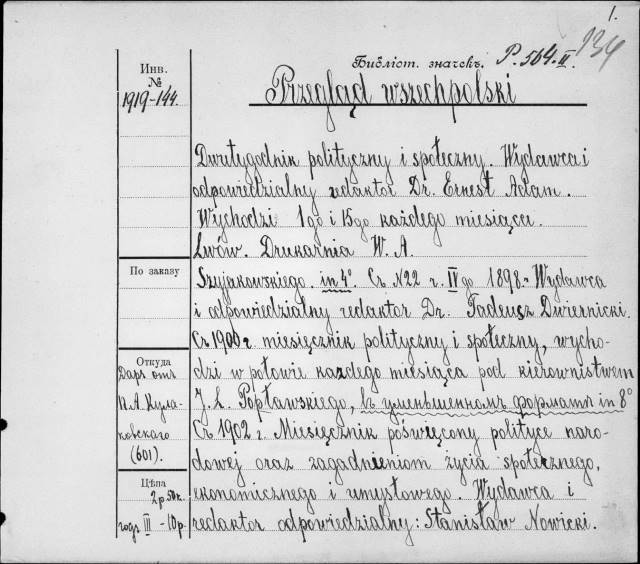 1.
Библіот. значекъ. P. 564. II.
134
Инв.
№
1919-144.
Przegląd wszechpolski
Dwutygodnik polityczny i społeczny. Wydawca i
odpowiedzialny redaktor Dr. Ernest Adam.
Wychodzi 1go i 15go każdego miesiąca.
Lwów. Drukarnia W. A.
По заказу
Szyjkowskiego. in 4° Съ N22 г. IVго 1898.- Wydawca
i odpowiedzialny redaktor Dr. Tadeusz Dwiernicki.
Съ 1900 г. miesięcznik polityczny i społeczny, wycho-
dzi w połowie każdego miesiąca pod kierownistwem
J. L. Popławskiego, въ уменьшенномъ форматѣ in 8°
Съ 1902 г. Miesięcznik poświęcony polityce naro-
dowej oraz zagadnieniom życia społecznego,
ekonomicznego i umysłowego. Wydawca i
redaktor odpowiedzialny: Stanisław Nowicki.
Откуда
Даръ отъ
П. А. Кула-
ковскаго
(601).
Цѣна
2р 50к.
годъ III - 10р.